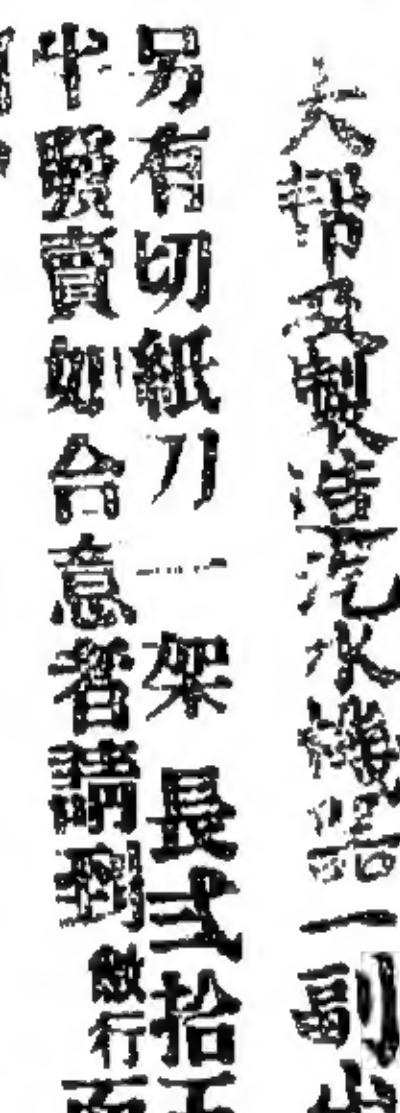 大帮及製造汽水機器一副
另有切紙刀一架長弍拾
半發賣如合意者請到敝行面